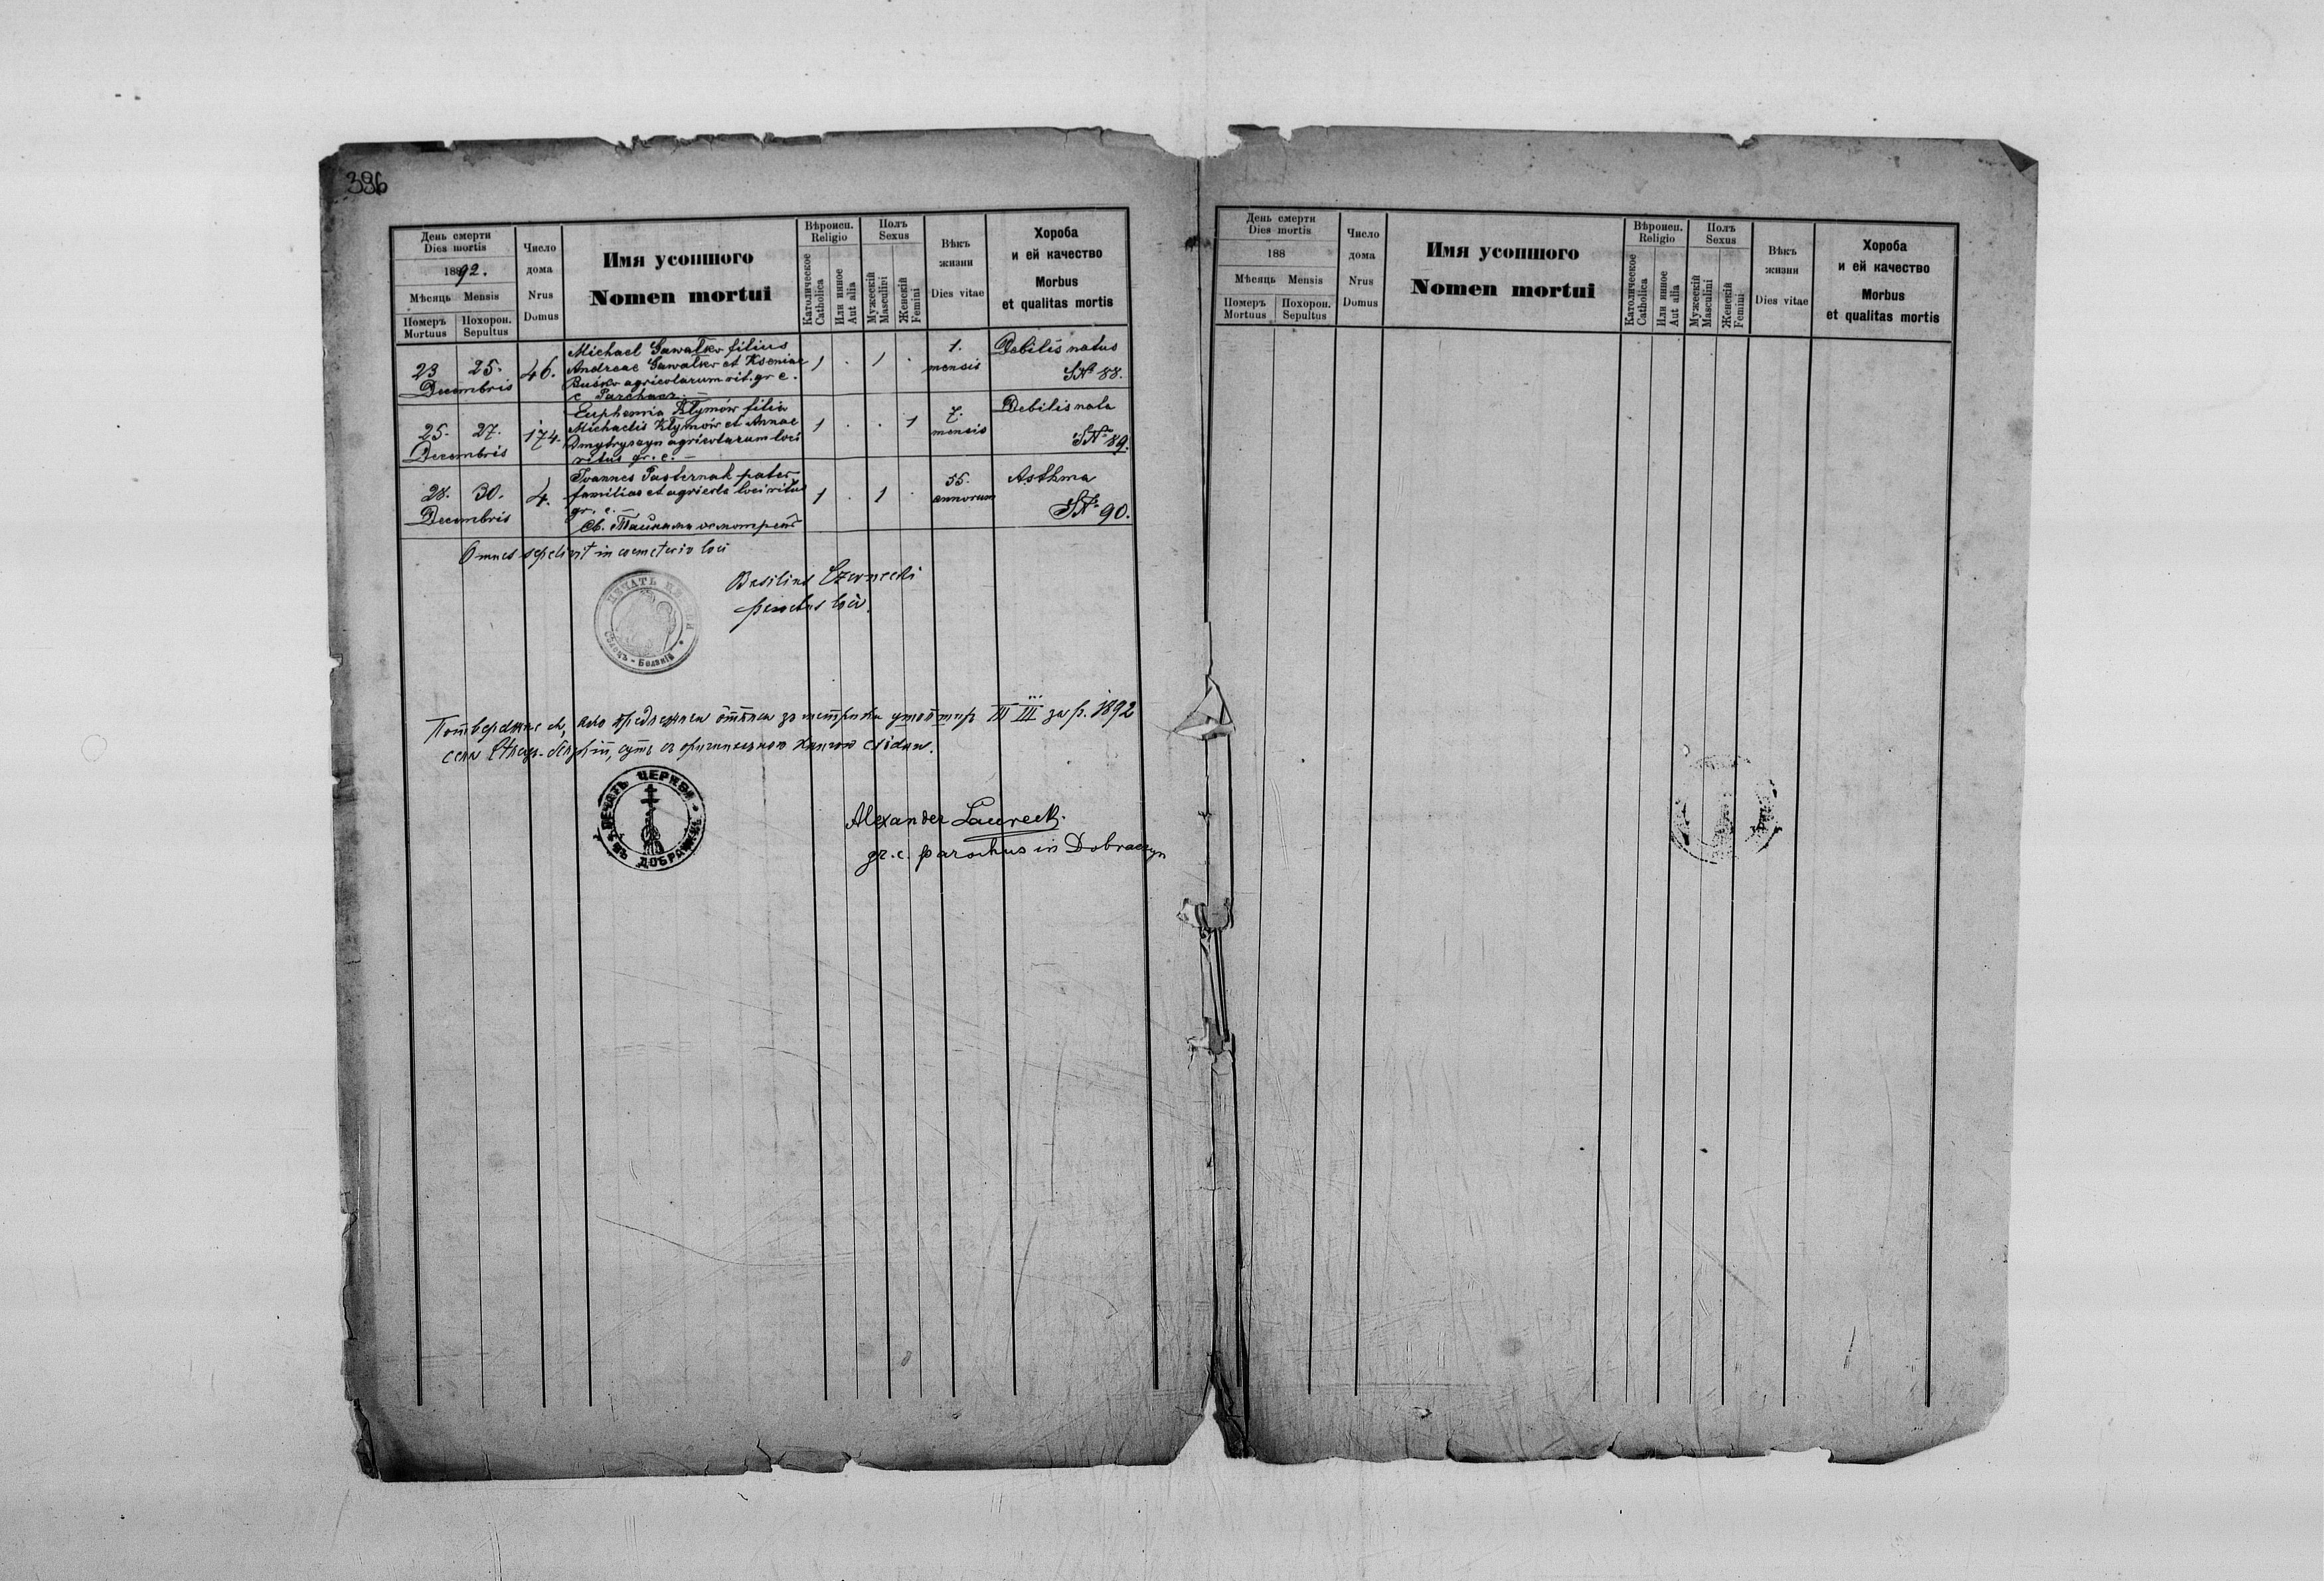 396
День смерти
Dies mortis
1892.
Мѣсяць Mensis
Померъ Похорон.
Mortuus Sepultus
Число
дома
Nrus
Domus
Имя усопшого
Nomen mortui
Вѣроисп.
Religio
Католическое
Catholica
Или инное
Aut alia
Полъ
Sexus
Мужескій
Masculini
Женскій
Femini
Вѣкъ
жизни
Dies vitae
Хороба
и ей качество
Morbus
et qualitas mortis
23 25. Decembris
46.
Michael Gawalko filius
Andreae Gawalko et Kseniae
Busko agricolarum rit. gr. c.
c Parchacz.
1 . 1 .
1. mensis
Debilis natus
№ 88.
25. 27. Decembris
174.
Euphemia Klymów filia
Michaelis Klymów et Annae
Dmytryszyn agricolarum loci
ritus gr. c. —
1 . . 1
7. mensis
Debilis nata
№ 89.
28. 30. Decembris
4.
Joannes Pasternak pater
familias et agricola loci ritus
gr. c. —
Св. Тайнами осмотренъ
1 . 1 .
55. annorum
Asthma
№ 90.
Omnes sepelivit in coemeterio loci
Basilius Czernecki
parochus loci.
ПЕЧАТЬ
Белзкій
за р. 1892
села
Alexander Laureck.
gr. c. parochus in Dobraczyn
ПЕЧАТЬ ЦЕРКВИ
День смерти
Dies mortis
188
Мѣсяць Mensis
Померъ Похорон.
Mortuus Sepultus
Число
дома
Nrus
Domus
Имя усопшого
Nomen mortui
Вѣроисп.
Religio
Католическое
Catholica
Или инное
Aut alia
Полъ
Sexus
Мужескій
Masculini
Женскій
Femini
Вѣкъ
жизни
Dies vitae
Хороба
и ей качество
Morbus
et qualitas mortis